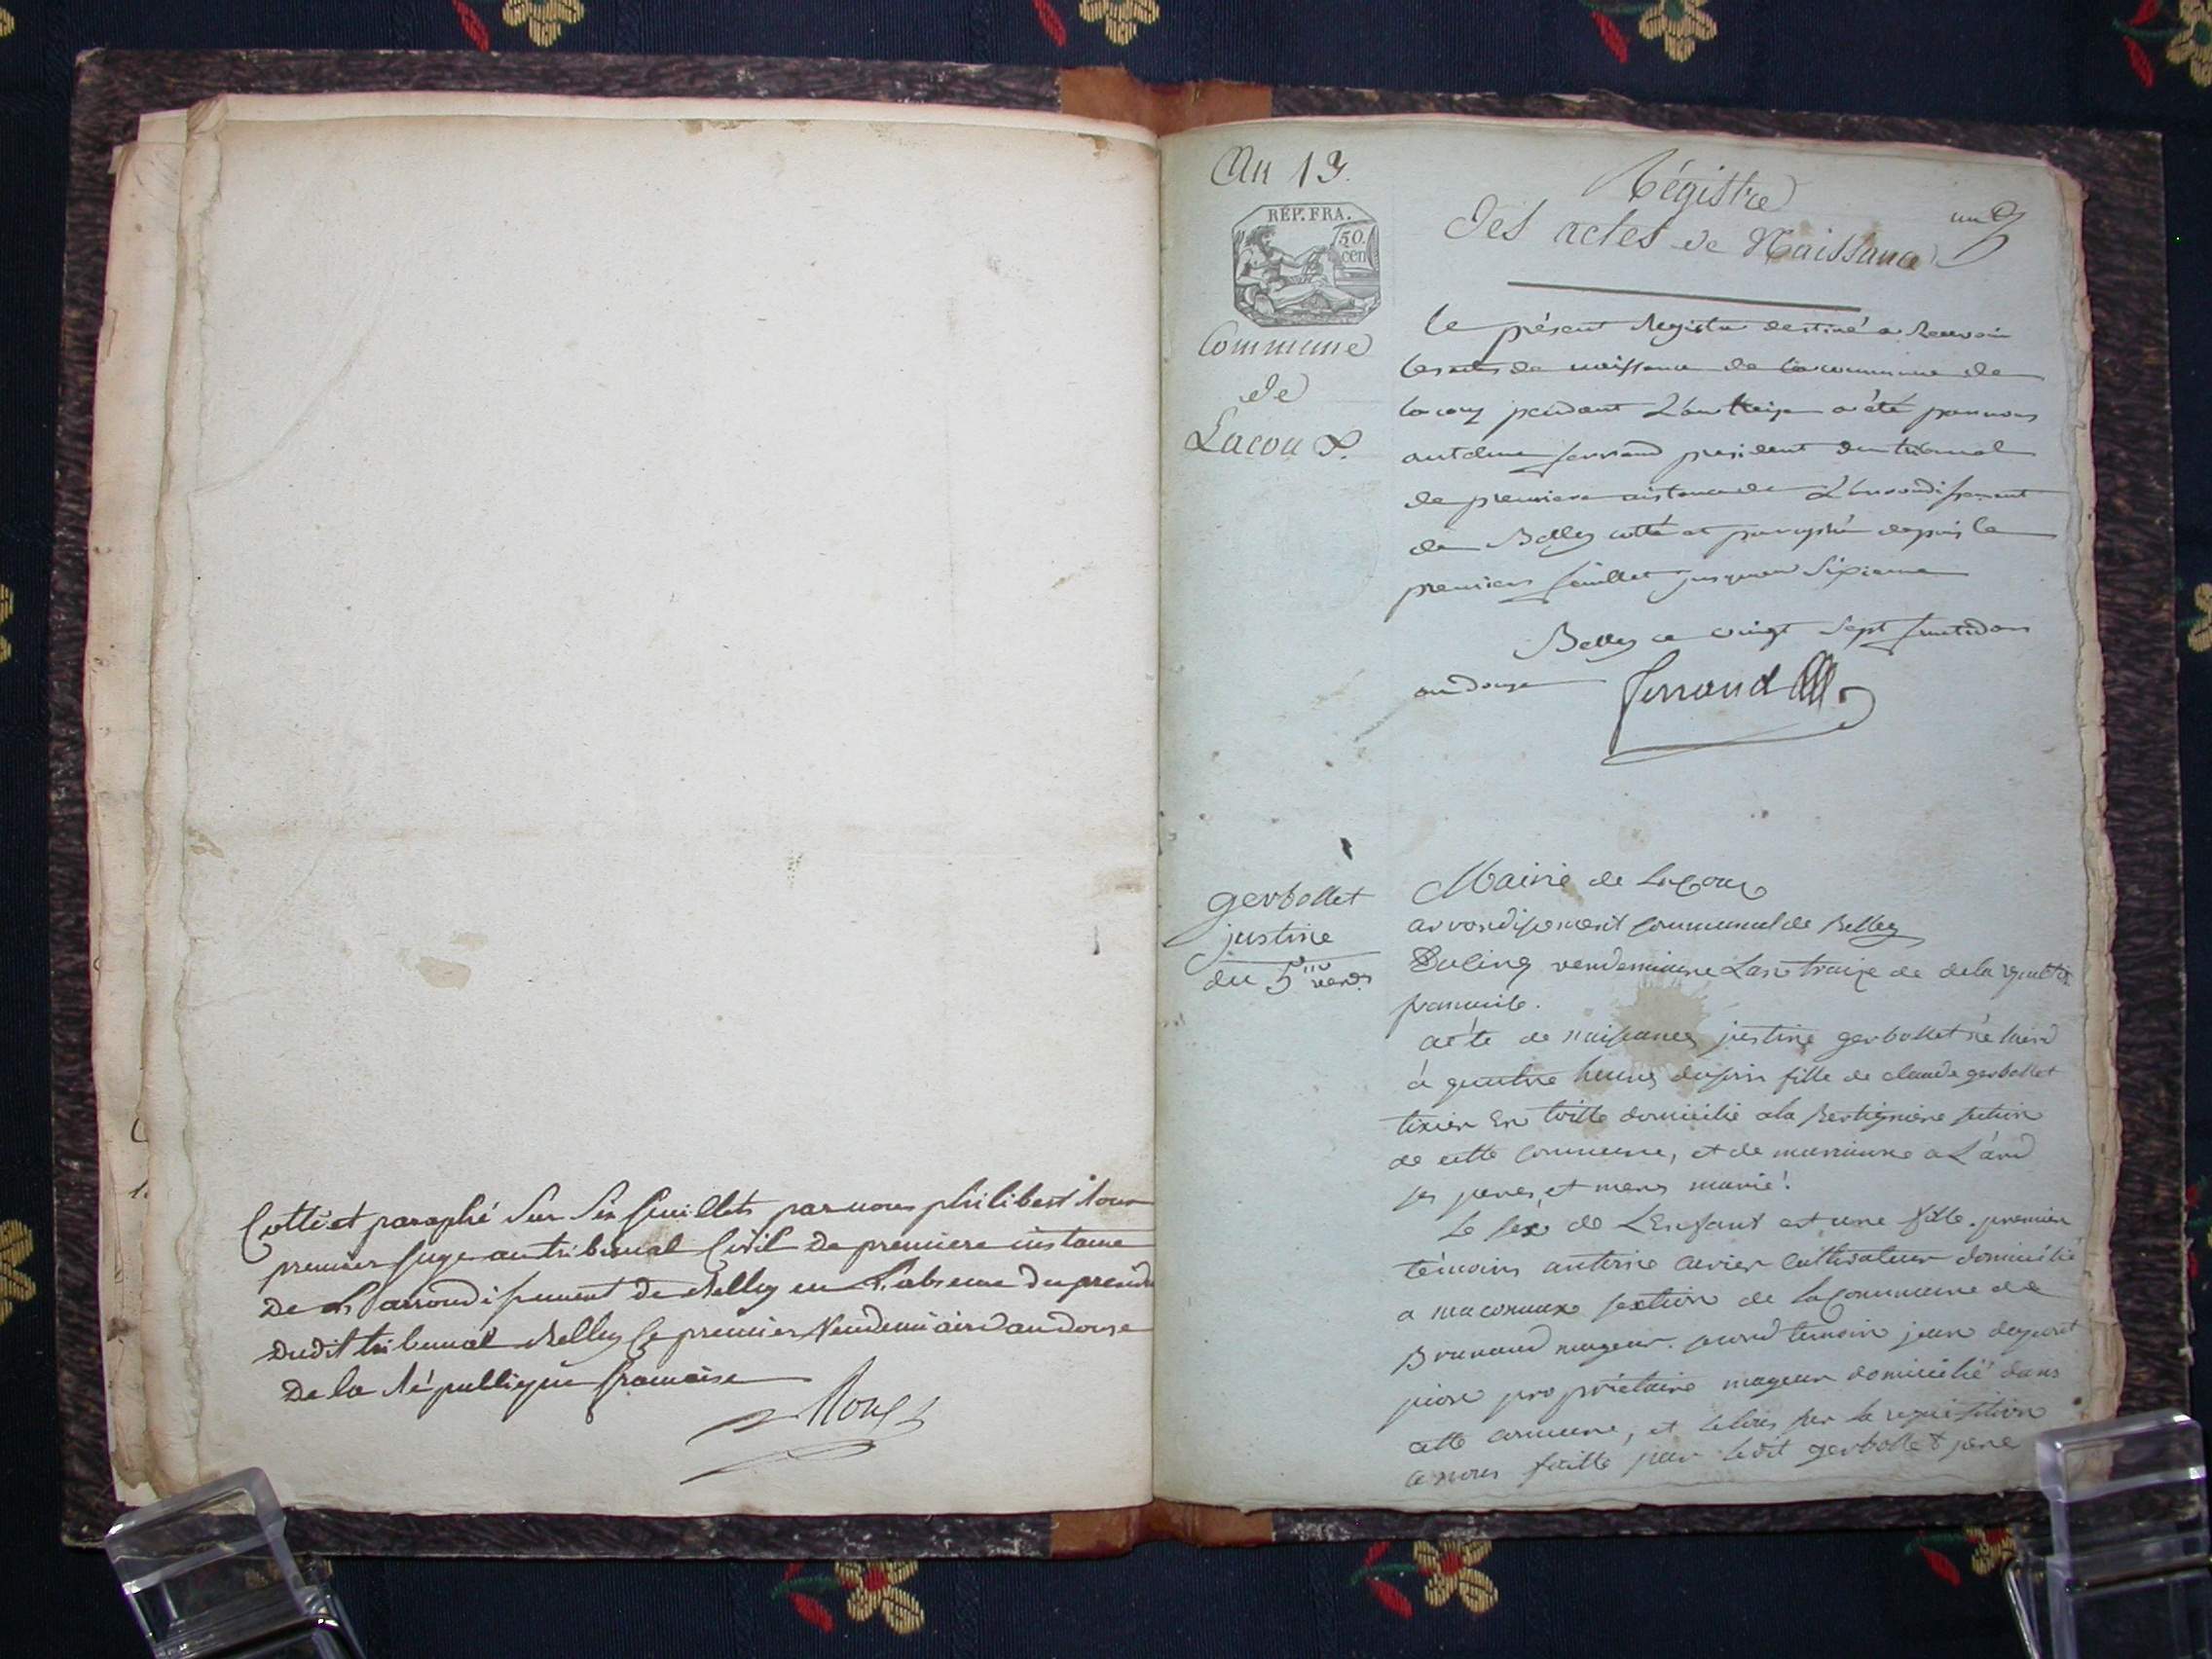 Cotté et paraphé sur six feuillets par nous philibert
premier juge au tribunal Civil de premiere instance
De L'arrondissement de Belley en L'absence du presidt
dudit tribunal Belley le premier Vendemiaire an douze
De la république française
An 13.
RÉP. FRA.
50.
cen
Commune
de
Lacoux.
Régistre
des actes de Naissance
un
le présent Registre destiné a Recevoir
les actes de naissance de la commune de
lacoux pendant L'an treize a été par nous
antelme ferrand president du tribunal
de premiere instance de L'arrondissement
de Belley cotté et paraphé depuis le
premier feuillet jusqu'au sixieme
Belley ce vingt sept fructidor
an douze
ferrand
gerbollet
justine
du 5me vend.
Mairie de Lacoux
arrondisement communal de Belley
Du cinq vendemiaire Lan traize de de la
francaise.
acte de naissance justine gerbollet né
à quatre heures du soir fille de claude gerbollet
tixier en toille domicilié a la section
de cette commune, et de marianne
ses peres, et meres marié.
Le sexe de L'enfant est une fille. premier
témoins antoine cultivateur domicilié
a maconnaux section de la commune de
majeur. second temoin jean
propriétaire mageur domicilié dans
cette commune, et sur la requisition
a nous faitte par ledit gerbollet pere